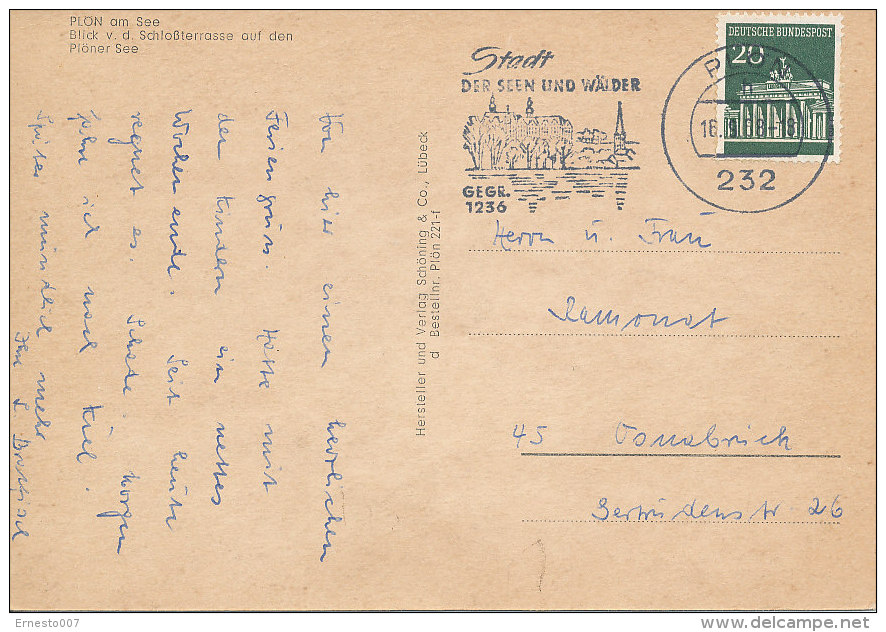 PLÖN am See
Blick v. d. Schloßterrasse auf den
Plöner See
Stadt
DER SEEN UND WÄLDER
GEGR.
1236
DEUTSCHE BUNDESPOST
20
232
Von hier einen herzlichen
Feriengruss. Hatte mit
den Kindern ein nettes
Wochenende. Seit heute
regnet es. Schade. Morgen
fahre ich nach Kiel.
Später mündlich mehr
Ihr L
Hersteller und Verlag Schöning & Co., Lübeck
Bestellnr. Plön 221-f
Herrn u. Frau
Ramonat
45 Osnabrück
Gertrudenstr 26
Ernesto007
delcampe.net